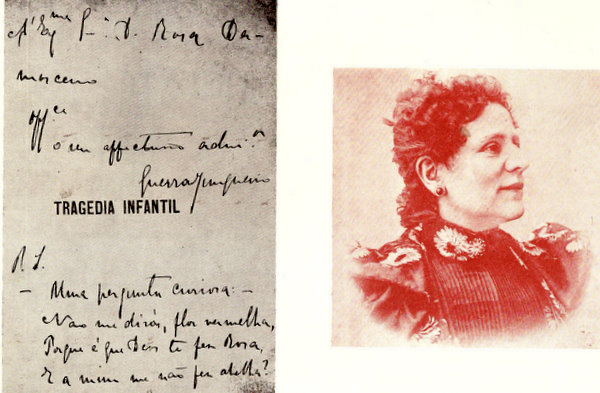 A' Exma Sra D. Rosa Da-
masceno
Offce
o seu affectuoso admi.or
Guerra Junqueiro
TRAGEDIA INFANTIL
P. S.
— Uma pergunta curiosa: —
Não me dirás, flor vermelha,
Porque é que Deus te fez Rosa,
E a mim me não fez abelha?